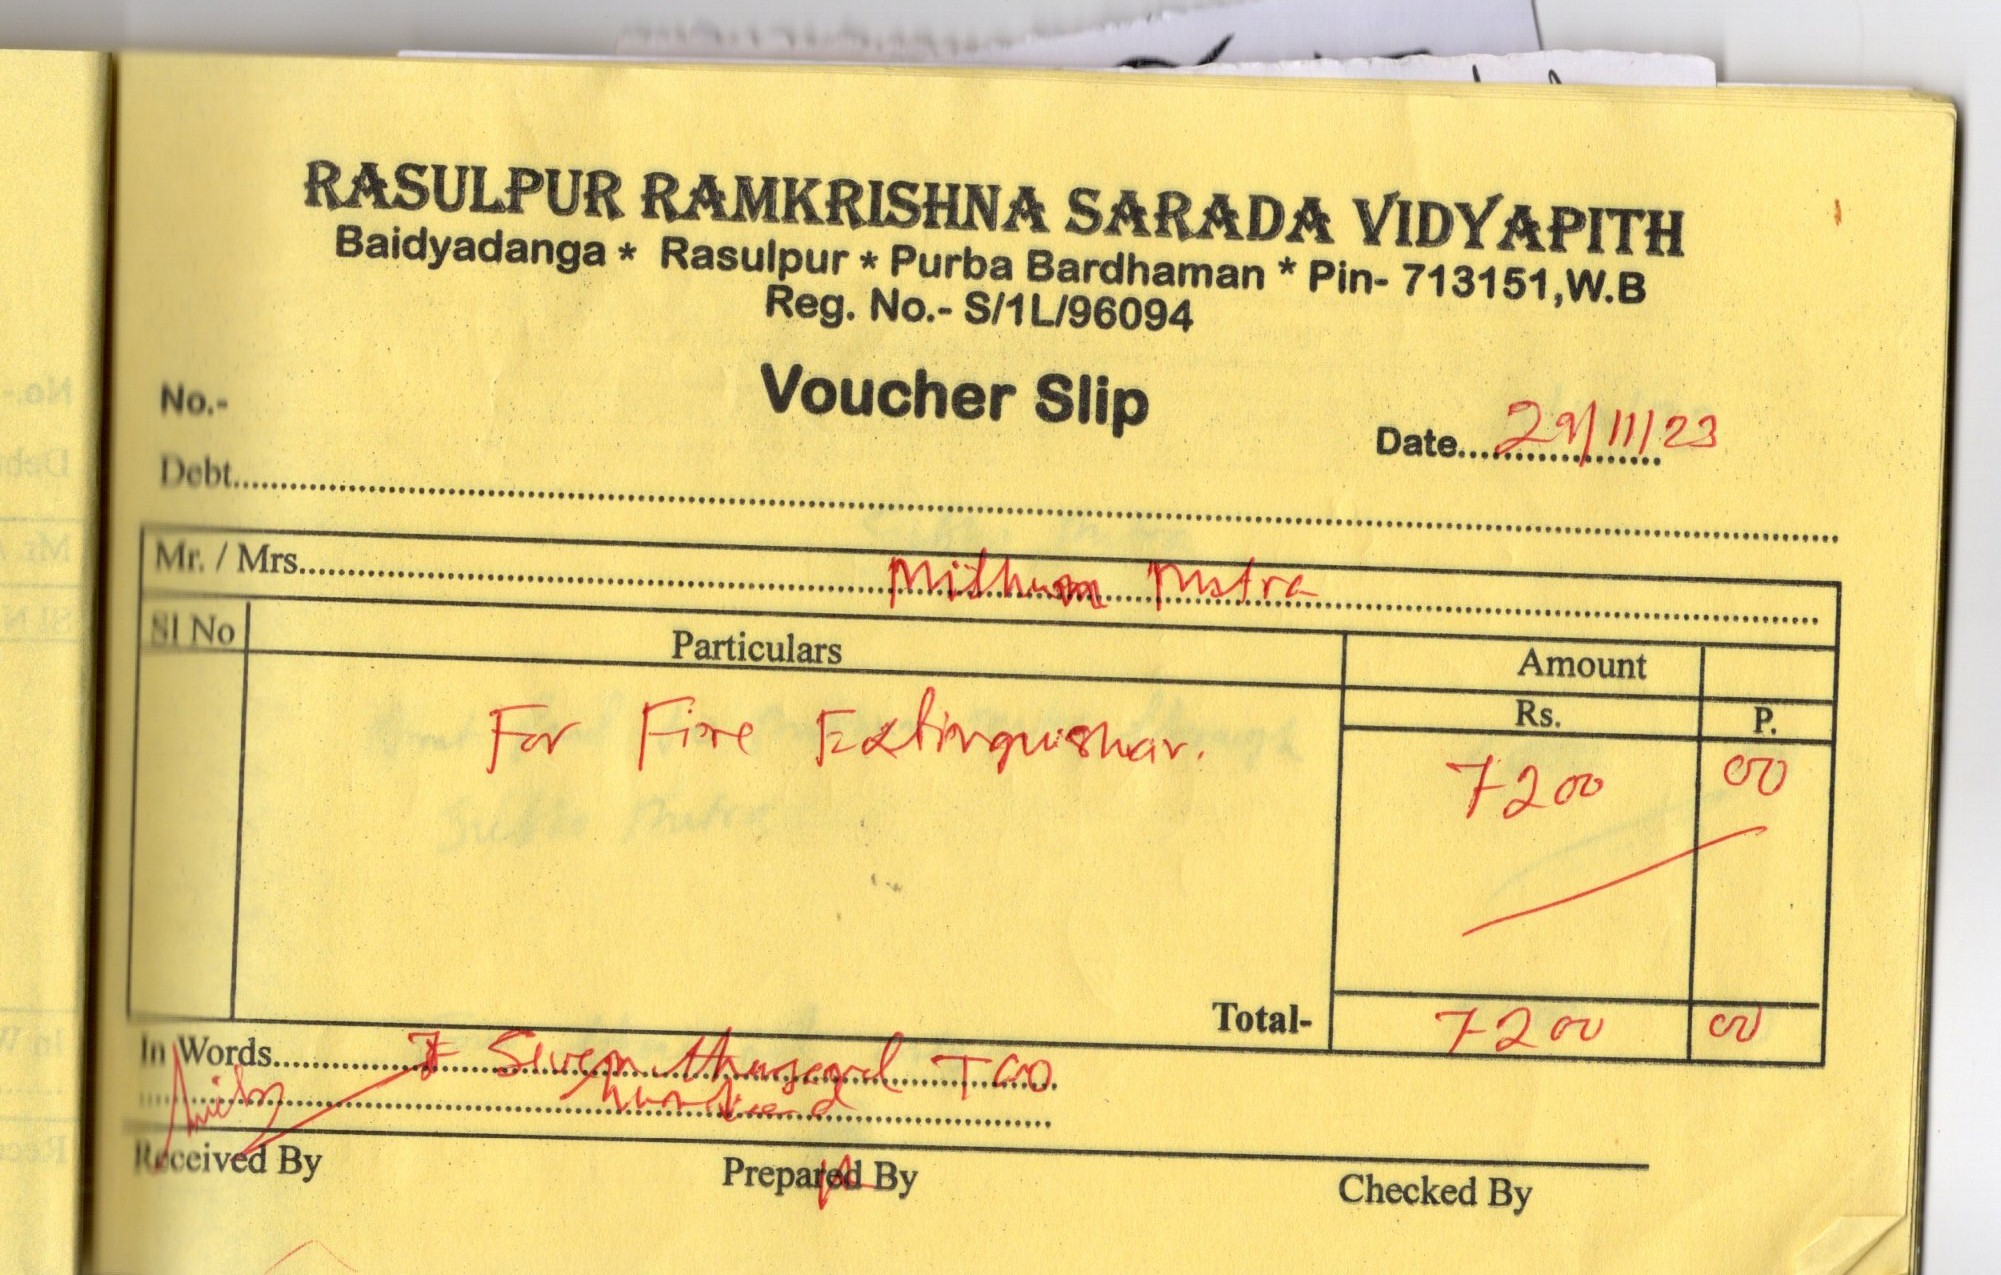 RASULPUR RAMKRISHNA SARADA VIDYAPITH
Baidyadanga * Rasulpur * Purba Bardhaman * Pin- 713151,W.B
Reg. No.- S/1L/96094
Voucher Slip
No.-
Date.... 29/11/23
Debt....
Mr. / Mrs.... Mithun Mitra
Sl No Particulars Amount
Rs. P.
For Fire Extinguishar. 7200 00
Total- 7200 00
In Words.... Seven thusand Two
hundred
Received By Prepared By Checked By